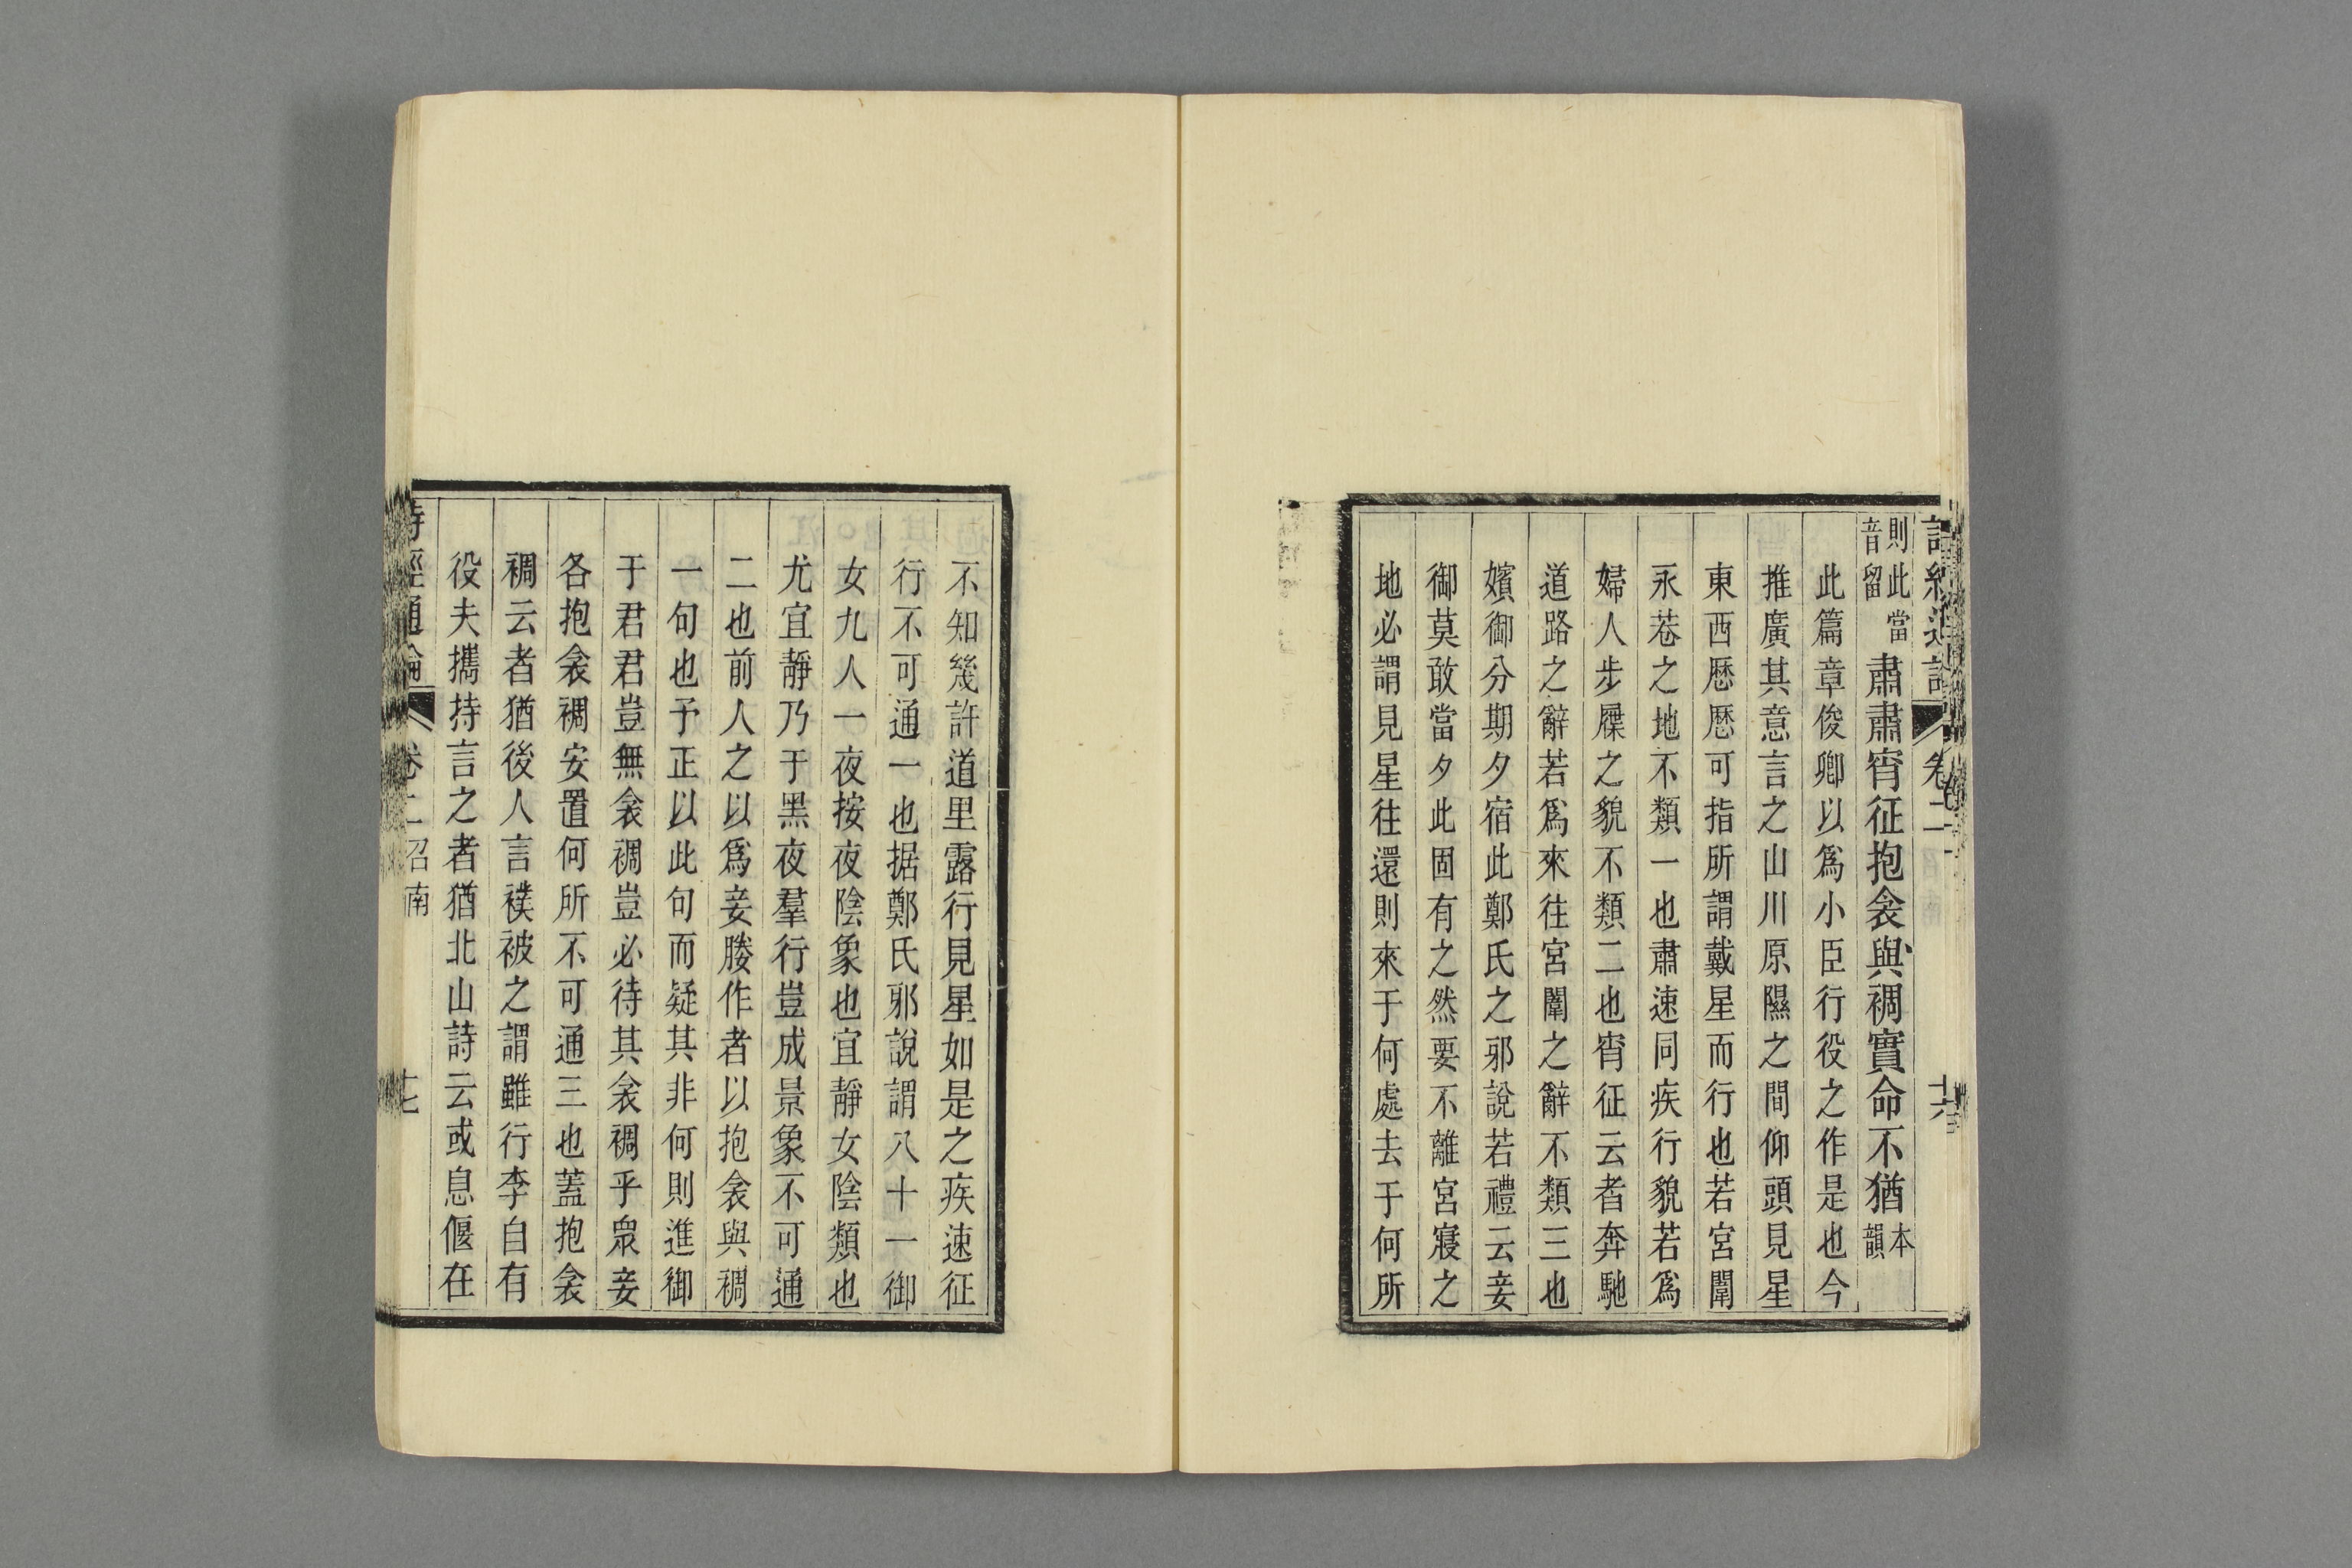 詩經通論 卷二 十六
則此當音留肅肅宵征抱衾與裯實命不猶本韻
此篇章俊卿以爲小臣行役之作是也今
推廣其意言之山川原隰之間仰頭見星
東西歷歷可指所謂戴星而行也若宮闈
永巷之地不類一也肅速同疾行貌若爲
婦人步屧之貌不類二也宵征云者奔馳
道路之辭若爲來往宮闈之辭不類三也
嬪御分期夕宿此鄭氏之邪說若禮云妾
御莫敢當夕此固有之然要不離宮寢之
地必謂見星往還則來于何處去于何所
不知幾許道里露行見星如是之疾速征
行不可通一也据鄭氏邪說謂八十一御
女九人一夜按夜陰象也宜靜女陰類也
尤宜靜乃于黑夜羣行豈成景象不可通
二也前人之以爲妾媵作者以抱衾與裯
一句也予正以此句而疑其非何則進御
于君君豈無衾裯豈必待其衾裯乎衆妾
各抱衾裯安置何所不可通三也蓋抱衾
裯云者猶後人言襆被之謂雖行李自有
役夫攜持言之者猶北山詩云或息偃在
詩經通論 卷二 召南 十七